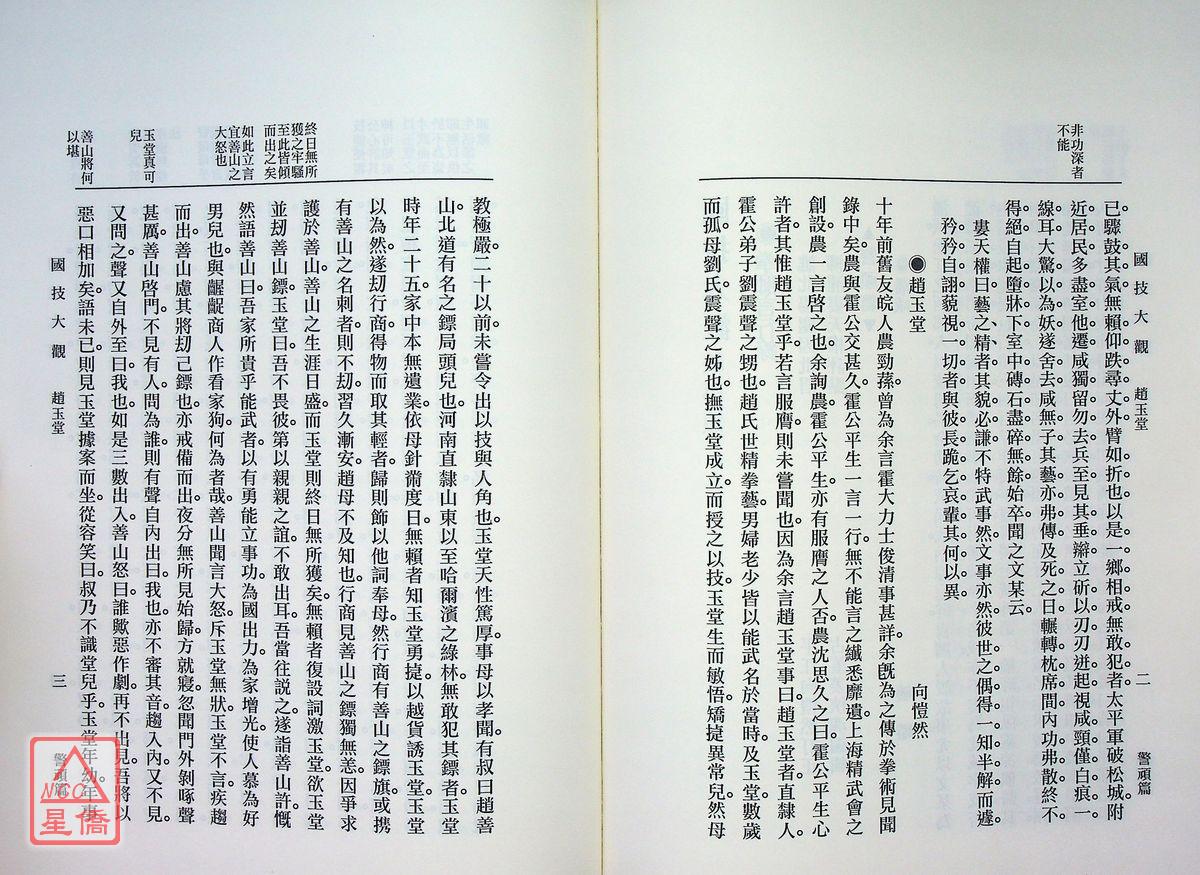 非功深者
不能
國技大觀　趙玉堂
二　警頑篇
已驟鼓其氣無賴仰跌尋丈外臂如折也以是一鄉相戒無敢犯者太平軍破松城附
近居民多盡室他遷咸獨留勿去兵至見其垂辮立斫以刃刃迸起視咸頸僅白痕一
線耳大驚以為妖遂舍去咸無子其藝亦弗傳及死之日輾轉枕席間內功弗散終不
得絕自起墮牀下室中磚石盡碎無餘始卒聞之文某云
婁天權曰藝之精者其貌必謙不特武事然文事亦然彼世之偶得一知半解而遽
矜矜自詡藐視一切者與彼長跪乞哀輩其何以異
◉趙玉堂
向愷然
十年前舊友皖人農勁蓀曾為余言霍大力士俊清事甚詳余旣為之傳於拳術見聞
錄中矣農與霍公交甚久霍公平生一言一行無不能言之纖悉靡遺上海精武會之
創設農一言啓之也余詢農霍公平生亦有服膺之人否農沈思久之曰霍公平生心
許者其惟趙玉堂乎若言服膺則未嘗聞也因為余言趙玉堂事曰趙玉堂者直隸人
霍公弟子劉震聲之甥也趙氏世精拳藝男婦老少皆以能武名於當時及玉堂數歲
而孤母劉氏震聲之姊也撫玉堂成立而授之以技玉堂生而敏悟矯捷異常兒然母
終日無所
獲之牢騷
至此皆傾
而出之矣
如此立言
宜善山之
大怒也
玉堂真可
兒
善山將何
以堪
教極嚴二十以前未嘗令出以技與人角也玉堂天性篤厚事母以孝聞有叔曰趙善
山北道有名之鏢局頭兒也河南直隸山東以至哈爾濱之綠林無敢犯其鏢者玉堂
時年二十五家中本無遺業依母針黹度日無賴者知玉堂勇㨗以越貨誘玉堂玉堂
以為然遂刼行商得物而取其輕者歸則飾以他詞奉母然行商有善山之鏢旗或携
有善山之名刺者則不刼習久漸安趙母不及知也行商見善山之鏢獨無恙因爭求
護於善山善山之生涯日盛而玉堂則終日無所獲矣無賴者復設詞激玉堂欲玉堂
並刼善山鏢玉堂曰吾不畏彼第以親親之誼不敢出耳吾當往説之遂詣善山許慨
然語善山曰吾家所貴乎能武者以有勇能立事功為國出力為家增光使人慕為好
男兒也與齷齪商人作看家狗何為者哉善山聞言大怒斥玉堂無狀玉堂不言疾趨
而出善山慮其將刼己鏢也亦戒備而出夜分無所見始歸方就寢忽聞門外剝啄聲
甚厲善山啓門不見有人問為誰則有聲自內出曰我也亦不審其音趨入內又不見
又問之聲又自外至曰我也如是三數出入善山怒曰誰歟惡作劇再不出見吾將以
惡口相加矣語未已則見玉堂據案而坐從容笑曰叔乃不識堂兒乎玉堂年幼年事
國技大觀　趙玉堂
三　警頑篇
NCC
星僑